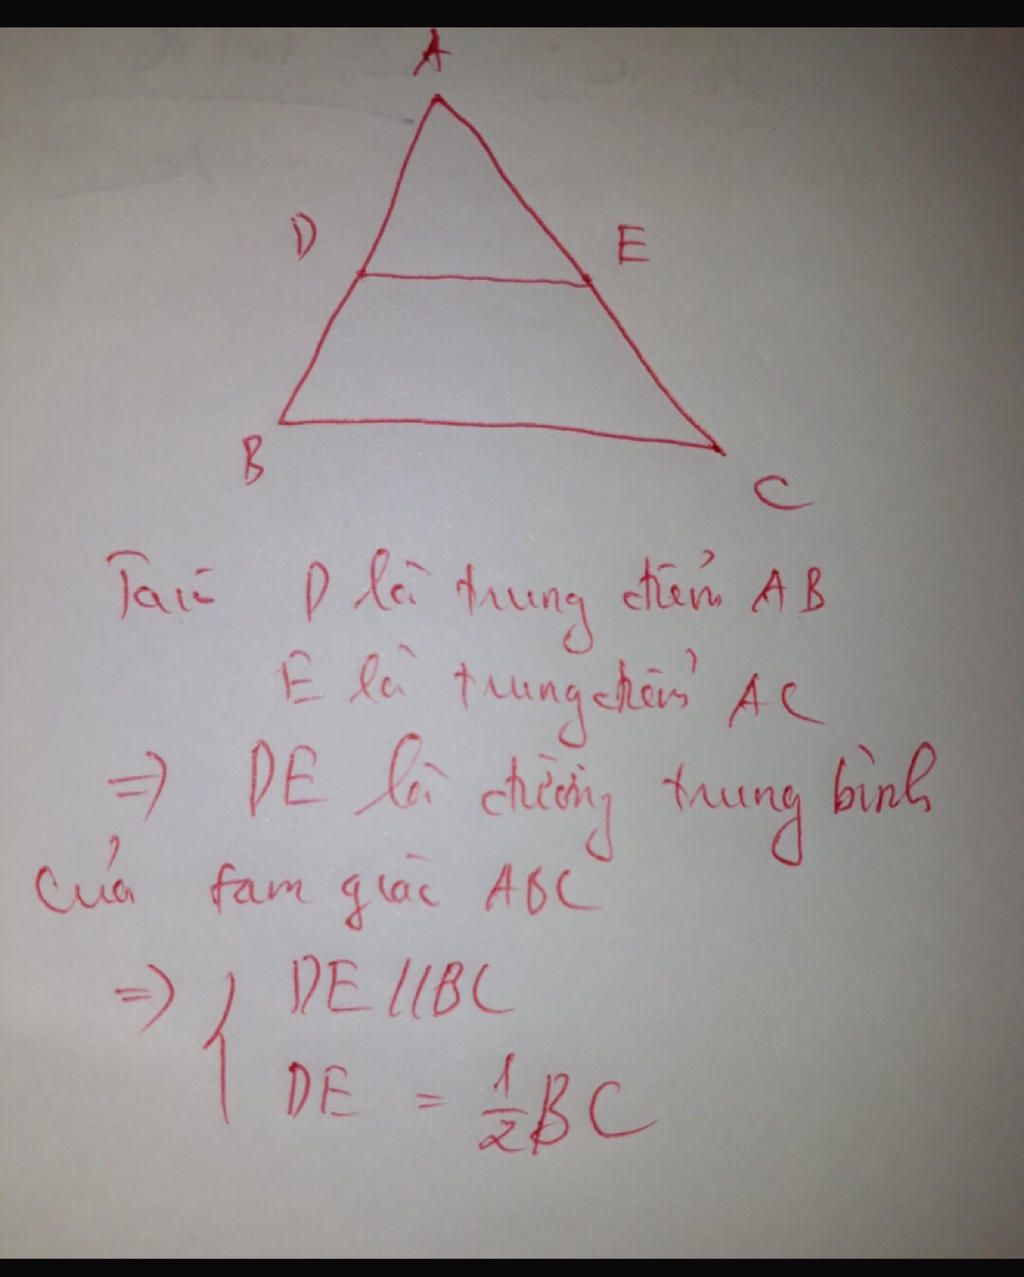 A
D E
B
C
Ta có D là trung điểm AB
E là trung điểm AC
=> DE là đường trung bình
của tam giác ABC
=> { DE // BC
DE = 1/2 BC